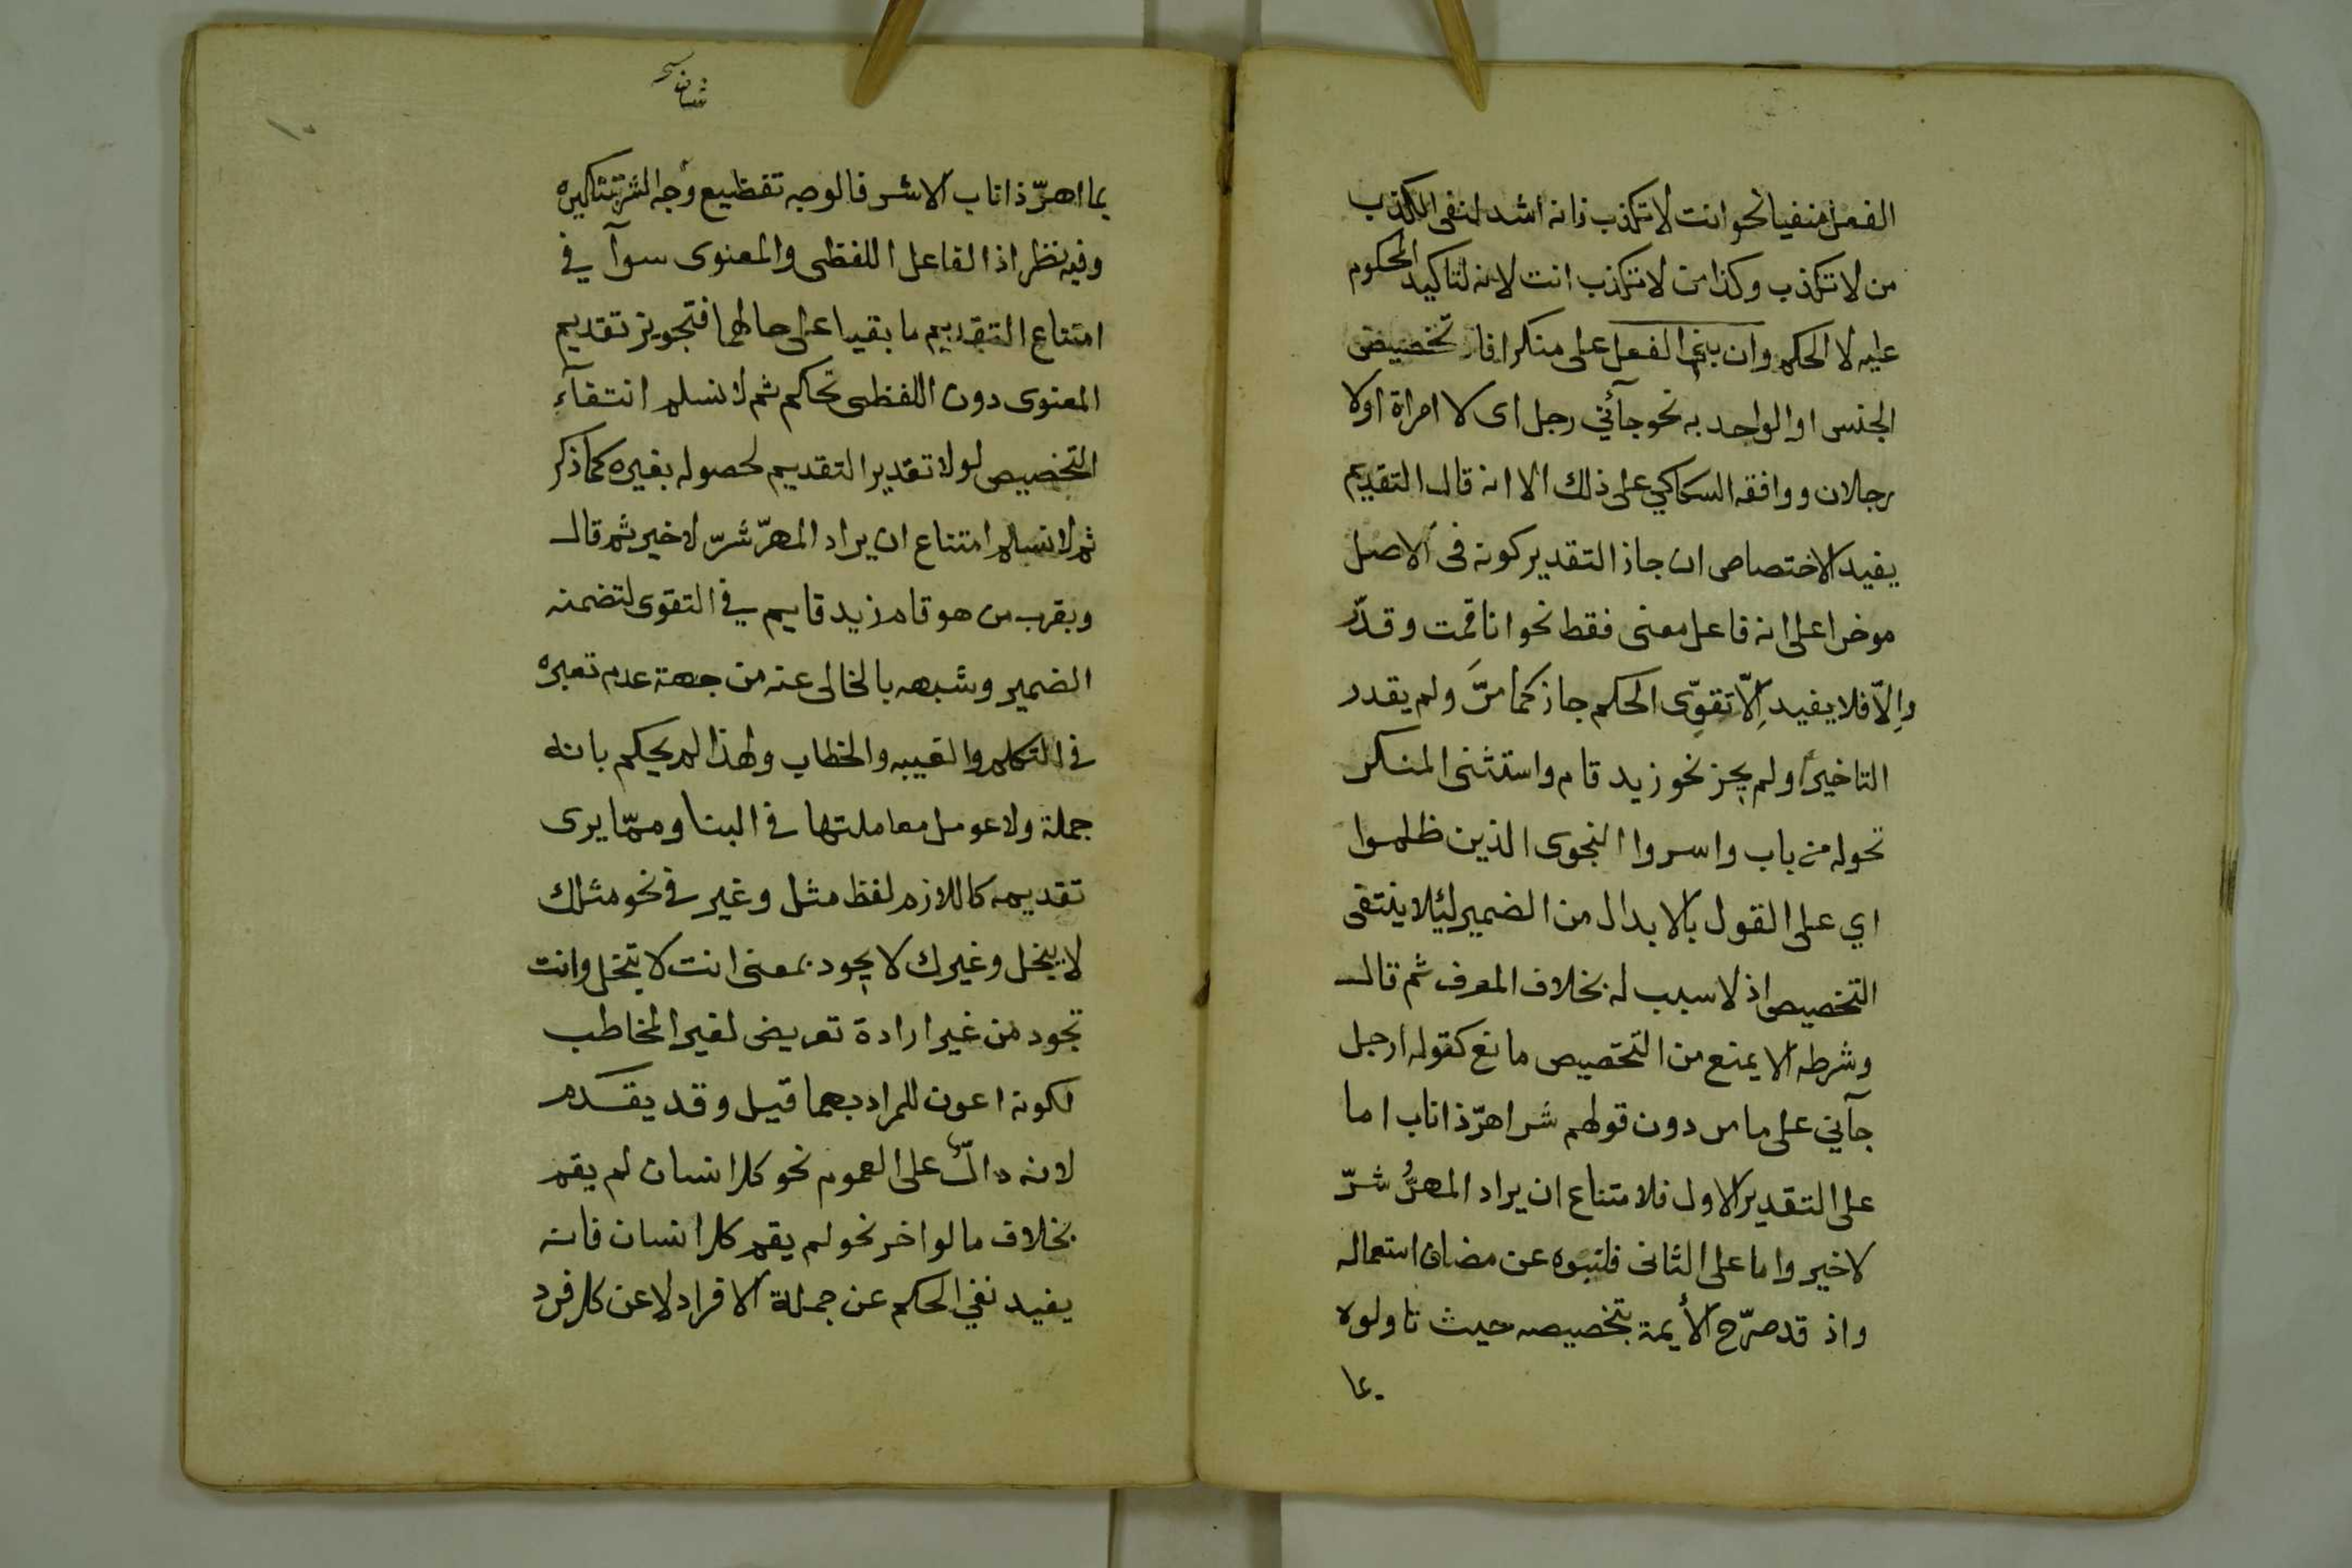 الفعل منفيا نحو انت لا تكذب فانه اشد لنفى الكذب
من لا تكذب وكذا من لا تكذب انت لانه لتاكيد المحكوم
عليه لا الحكم وان بنى الفعل على منكر افاد تخصيص
الجنس او الواحد به نحو جآئني رجل اى لا امراة او لا
رجلان ووافقه السكاكي على ذلك الا انه قال التقديم
يفيد الاختصاص ان جاز التقدير كونه فى الاصل
موخرا على انه فاعل معنى فقط نحو انا قمت وقدّر
وإلاّ فلا يفيد إلاّ تقوّى الحكم جاز كما مرَّ ولم يقدر
التاخير او لم يجز نحو زيد قام واستثنى المنكر
تحوله من باب واسروا النجوى الذين ظلموا
اي على القول بالابدال من الضمير لئلا ينتفى
التخصيص اذ لا سبب له بخلاف المعرف ثم قال
وشرطه الا يمنع من التخصيص مانع كقوله رجل
جآني على ما مر دون قولهم شر اهرّ ذا ناب اما
على التقدير الاول فلامتناع ان يراد المهرُّ شرّ
لا خير واما على الثانى فلنبوه عن مضان استعماله
واذ قد صرّح الأيمة بتخصيصه حيث تاولوه
بما
بما اهرّ ذا ناب الا شر فالوجه تفظيع شان الشر بتنكيره
وفيه نظر اذ الفاعل اللفظى والمعنوى سوآ في
امتناع التقديم ما بقيا على حالهما فتجويز تقديم
المعنوى دون اللفظى تحاكم ثم لا نسلم انتفآء
التخصيص لولا تقدير التقديم لحصوله بغيره كما ذكر
ثم لا نسلم امتناع ان يراد المهرّ شرّ لا خير ثم قال
ويقرب من هو قام زيد قايم في التقوى لتضمنه
الضمير وشبهه بالخالى عنه من جهة عدم تغيره
في التكلم والغيبه والخطاب ولهذا لم يحكم بانه
جملة ولا عومل معاملتها في البنا وممّا يرى
تقديمه كاللازم لفظ مثل وغير في نحو مثلك
لا يبخل وغيرك لا يجود بمعنى انت لا تبخل وانت
تجود من غير ارادة تعريض لغير المخاطب
لكونه اعون للمراد بهما قيل وقد يقدم
لانه دالّ على العموم نحو كل انسان لم يقم
بخلاف ما لو اخر نحو لم يقم كل انسان فانه
يفيد نفي الحكم عن جملة الافراد لا عن كل فرد